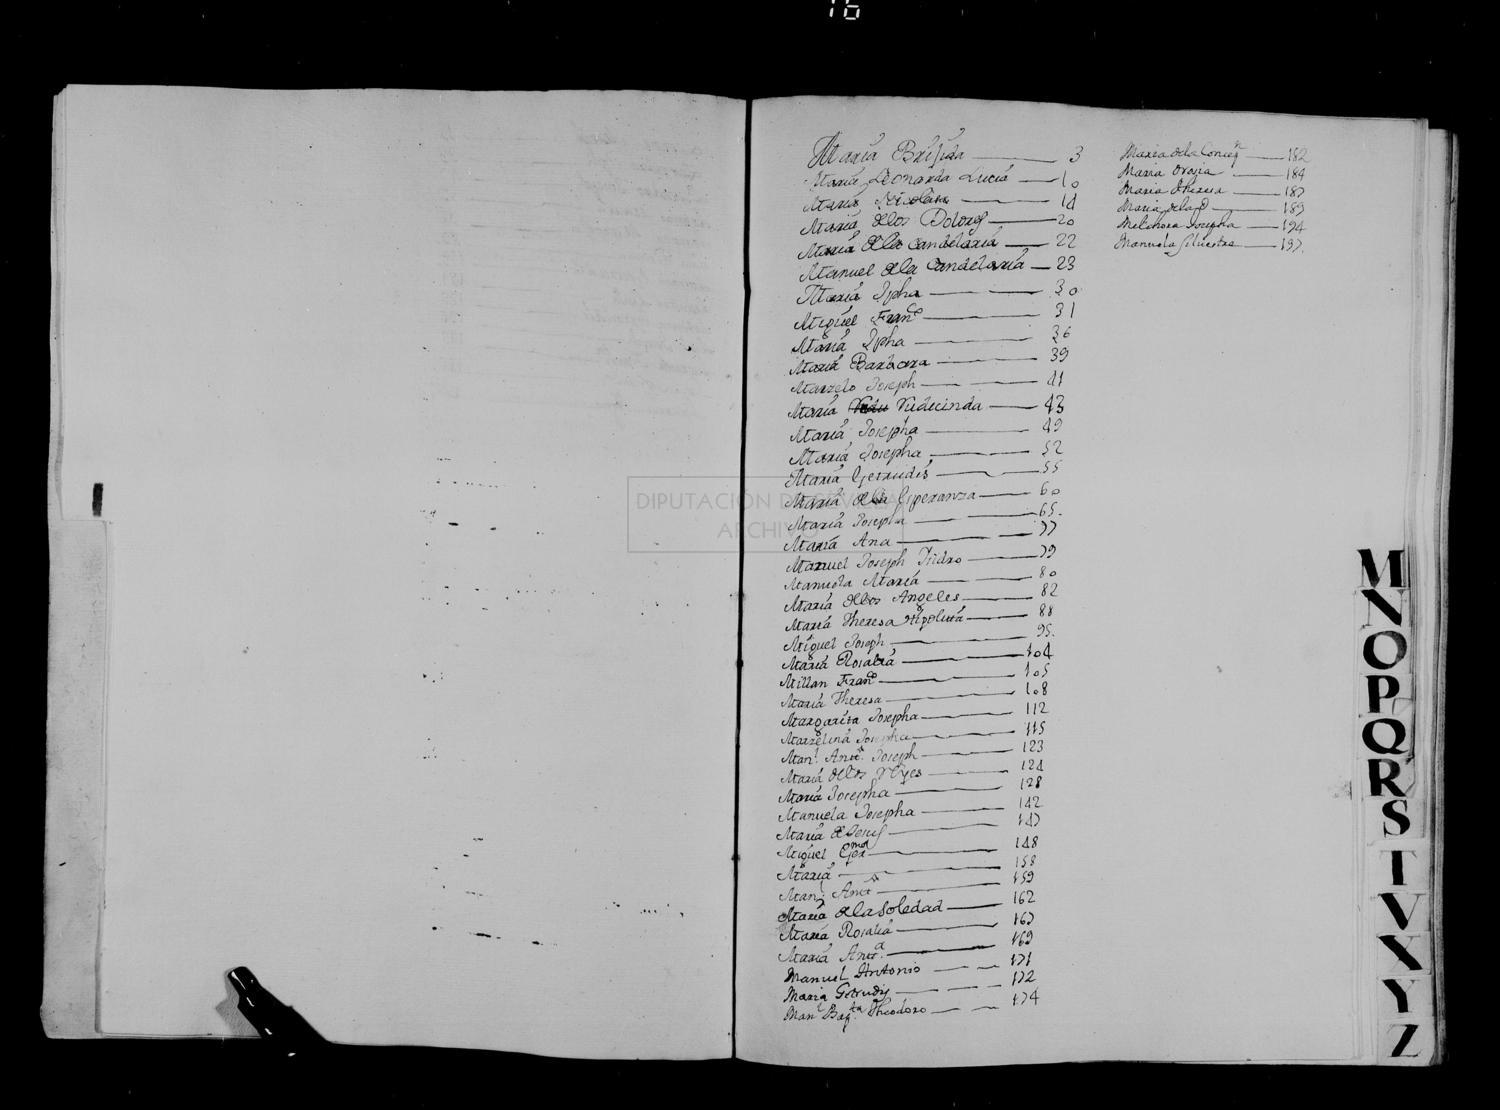 16
María Brijida 3
María Leonarda Lucia 10
María Nicolasa 14
María delos Dolores 20
María dela Candelaria 22
Manuel dela Candelaria 23
María Jpha 30
Miguel Franco 31
María Jpha 36
María Barbara 39
Marzelo Joseph 41
María Rudecinda 43
María Josepha 49
María Josepha 52
María Getrudis 55
María dela Esperanza 60
DIPUTACIÓN DE SEVILLA
ARCHIVO
María Josepha 65.
María Ana 77
Manuel Joseph Isidro 79
Manuela María 80
María delos Angeles 82
María Theresa Hipolita 88
Miguel Joseph 95.
María Rosalia 104
Millan Franco 105
María Theresa 108
Margarita Josepha 112
Marzelina Josepha 115
Manl. Anto. Joseph 123
María delos Reyes 124
María Josepha 128
Manuela Josepha 142
María de Jesus 147
Miguel 148
María 158
Manl Anto 159
María dela Soledad 162
María Rosalia 167
María Anta. 169
Manuel Antonio 171
Maria Getrudis 172
Manl Bapta. Theodoro 174
Maria dela Concepn 182
Maria 184
Maria Theresa 187
Maria dela O 189
Melchora Josepha 194
Manuela Silvestra 197.
M
N
O
P
Q
R
S
T
V
X
Y
Z